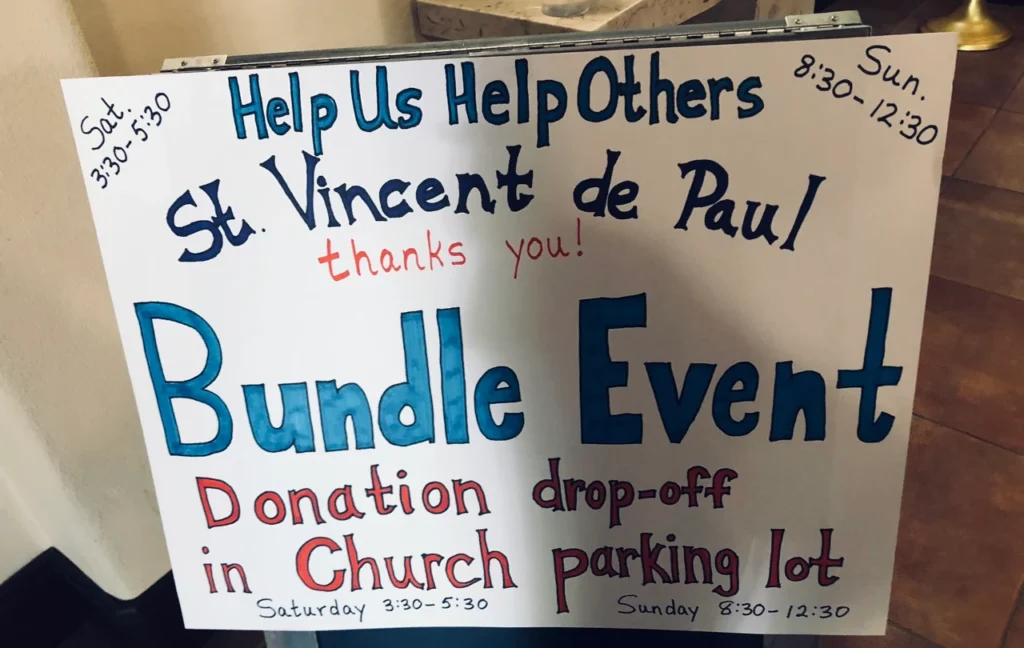 Sat.
3:30-5:30
Help Us Help Others
Sun.
8:30-12:30
St. Vincent de Paul
thanks you!
Bundle Event
Donation drop-off
in Church parking lot
Saturday 3:30-5:30 Sunday 8:30-12:30